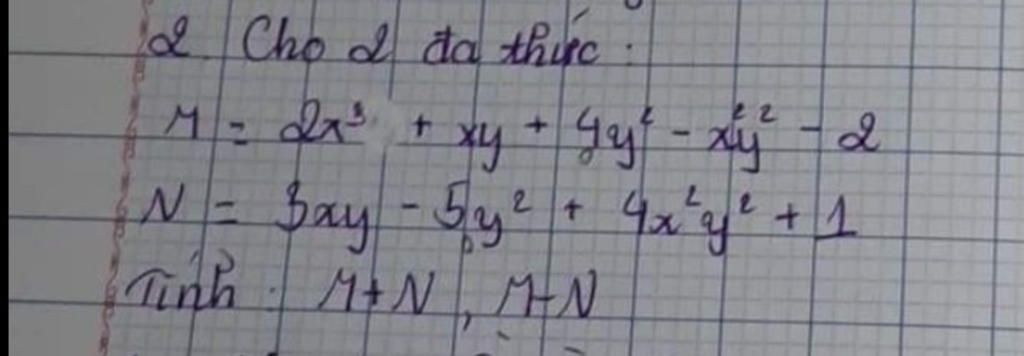 2 Cho 2 đa thức :
M = 2x³ + xy + 4y² - x²y² - 2
N = 3xy - 5y² + 4x²y² + 1
Tính : M+N , M-N